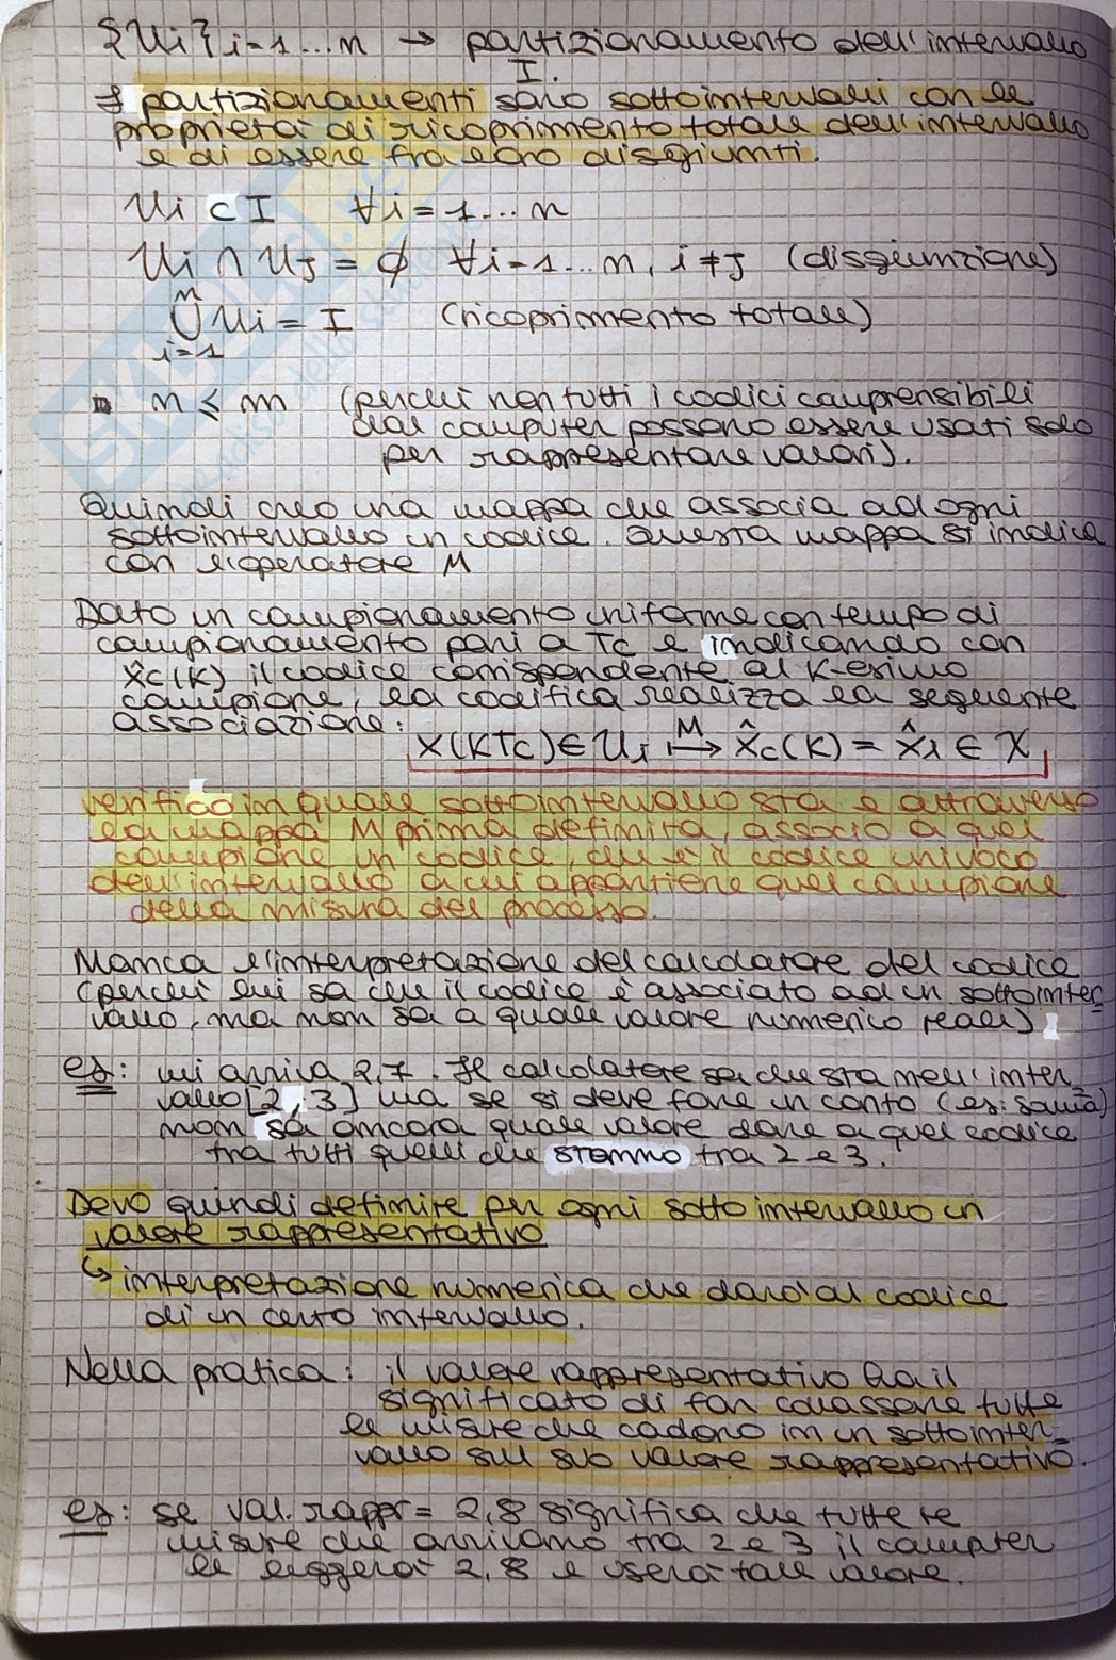 {Ui}i=1...n → partizionamento dell'intervallo
I.
I partizionamenti sono sottointervalli con le
proprietà di ricoprimento totale dell'intervallo
e di essere fra loro disgiunti.
Ui ⊂ I ∀i=1...n
Ui ∩ UJ = ∅ ∀i=1...n, i≠J (disgiunzione)
n
∪ Ui = I (ricoprimento totale)
i=1
▪ n ≤ m (perché non tutti i codici comprensibili
dal computer possono essere usati solo
per rappresentare valori).
Quindi creo una mappa che associa ad ogni
sottointervallo un codice. Questa mappa si indica
con l'operatore M
Dato un campionamento uniforme con tempo di
campionamento pari a Tc e indicando con
x̂c(K) il codice corrispondente al K-esimo
campione, la codifica realizza la seguente
associazione:
x(KTc) ∈ Ui ↦ᴹ x̂c(K) = x̂i ∈ X
verifico in quale sottointervallo sta e attraverso
la mappa M prima definita, associo a quel
campione un codice, che è il codice univoco
dell'intervallo a cui appartiene quel campione
della misura del processo.
Manca l'interpretazione del calcolatore del codice
(perché lui sa che il codice è associato ad un sottointer
vallo, ma non sa a quale valore numerico reale)
es: mi arriva 2,7. Il calcolatore sa che sta nell'inter
vallo [2, 3] ma se si deve fare un conto (es: somma)
non sa ancora quale valore dare a quel codice
tra tutti quelli che stanno tra 2 e 3.
Devo quindi definire per ogni sottointervallo un
valore rappresentativo
↳ interpretazione numerica che darò al codice
di un certo intervallo.
Nella pratica: il valore rappresentativo ha il
significato di far collassare tutte
le misure che cadono in un sottointer_
vallo sul suo valore rappresentativo.
es: se val. rappr = 2,8 significa che tutte le
misure che arrivano tra 2 e 3 il computer
le leggerà 2,8 e userà tale valore.